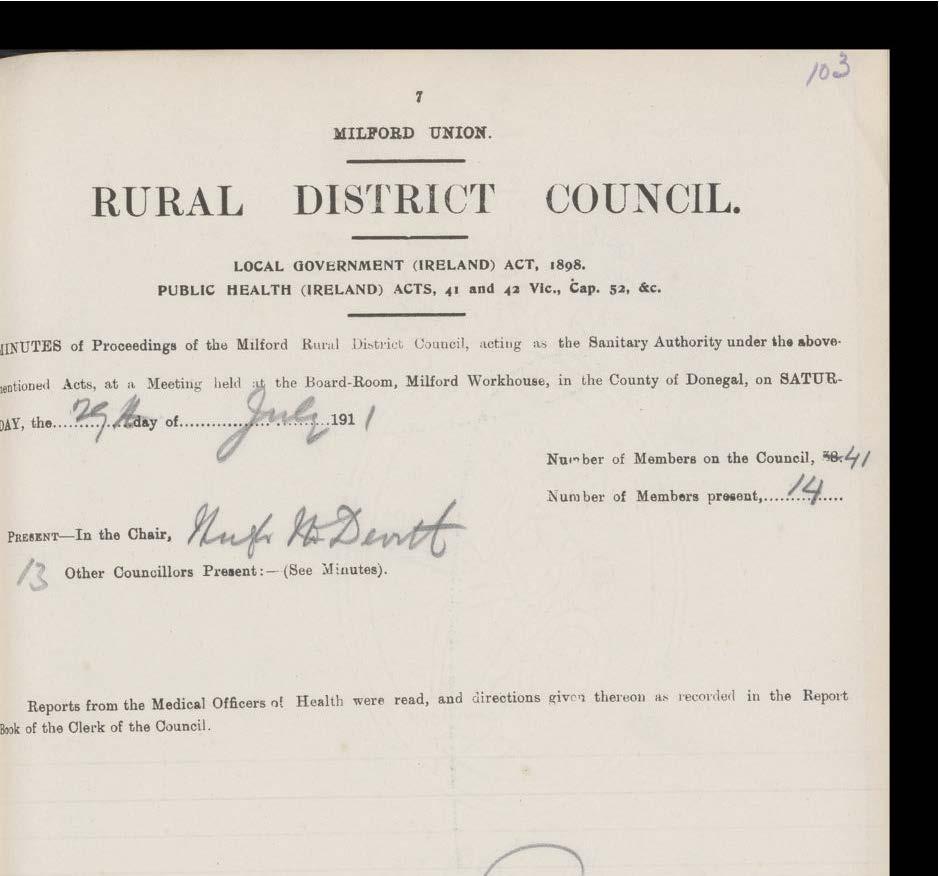 103
7
MILFORD UNION.
RURAL DISTRICT COUNCIL.
LOCAL GOVERNMENT (IRELAND) ACT, 1898.
PUBLIC HEALTH (IRELAND) ACTS, 41 and 42 Vic., Cap. 52, &c.
MINUTES of Proceedings of the Milford Rural District Council, acting as the Sanitary Authority under the above-
mentioned Acts, at a Meeting held at the Board-Room, Milford Workhouse, in the County of Donegal, on SATUR-
DAY, the 29th day of July 1911
Number of Members on the Council, 38. 41
Number of Members present, 14
PRESENT—In the Chair, Hugh McDevitt
13 Other Councillors Present:—(See Minutes).
Reports from the Medical Officers of Health were read, and directions given thereon as recorded in the Report
Book of the Clerk of the Council.